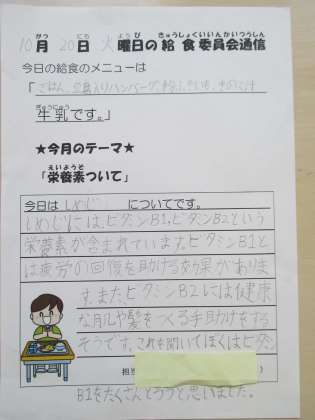 10月20日 火曜日の給食委員会通信
今日の給食のメニューは
「ごはん、 きのこ汁
牛乳です。」
★今月のテーマ★
「栄養素ついて」
今日は しめじ についてです。
しめじには、ビタミンB1,ビタミンB2という
栄養素が含まれています。ビタミンB1と
は疲労の回復を助ける効果がありま
す。また、ビタミンB2には健康
な肌や髪をつくる手助けをする
そうです。これを聞いてぼくはビタミン
担当
)
B1をたくさんとろうと思いました。